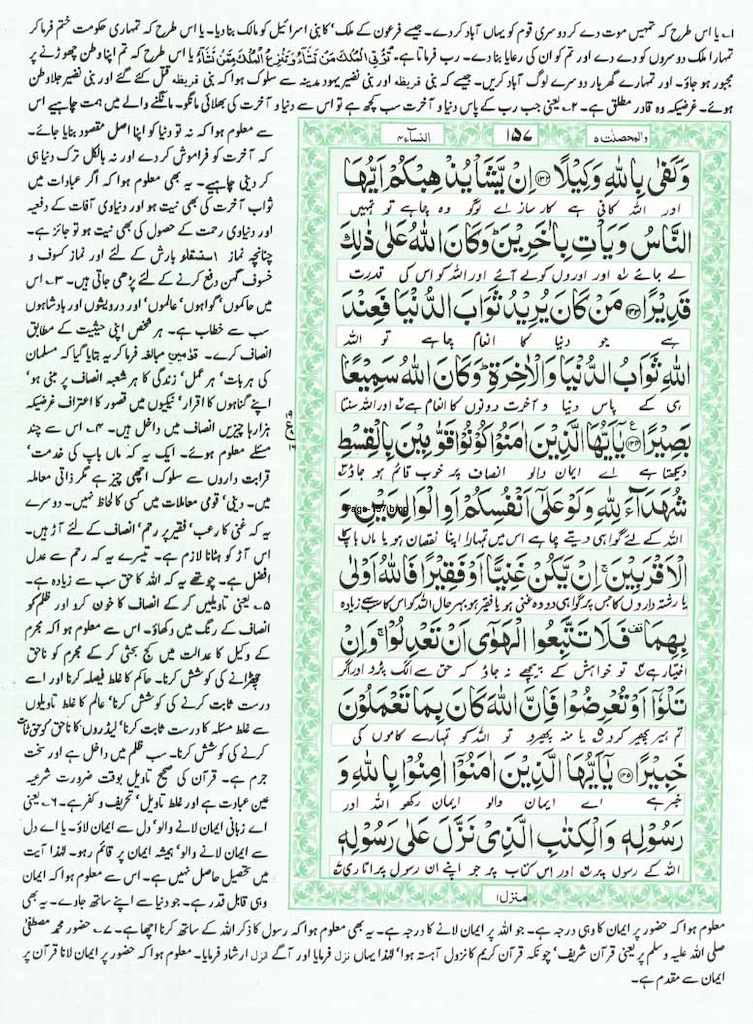 ۱؎ یا اس طرح کہ تمہیں موت دے کر دوسری قوم کو یہاں آباد کر دے۔ جیسے فرعون کے ملک کا بنی اسرائیل کو مالک بنا دیا۔ یا اس طرح کہ تمہاری حکومت ختم فرما کر
تمہارا ملک دوسروں کو دے دے اور تم کو ان کی رعایا بنا دے۔ رب فرماتا ہے۔ تُؤْتِی الْمُلْكَ مَنْ تَشَآءُ وَتَنْزِعُ الْمُلْكَ مِمَّنْ تَشَآءُ یا اس طرح کہ تم اپنا وطن چھوڑنے پر
مجبور ہو جاؤ۔ اور تمہارے گھر بار دوسرے لوگ آباد کریں۔ جیسے کہ بنی قریظہ اور بنی نضیر یہود مدینہ سے سلوک ہوا کہ بنی قریظہ قتل کئے گئے اور بنی نضیر جلا وطن
ہوئے۔ غرضیکہ وہ قادر مطلق ہے۔ ۲؎ یعنی جب رب کے پاس دنیا و آخرت سب کچھ ہے تو اس سے دنیا و آخرت کی بھلائی مانگو۔ مانگنے والے میں ہمت چاہیے اس
والمحصنت ۵
۱۵۷
النساء ۴
وَكَفٰى بِاللّٰهِ وَكِيْلًا ۝۱۳۲ اِنْ يَّشَاْ يُذْهِبْكُمْ اَيُّهَا
اور اللہ کافی ہے کارساز اے لوگو وہ چاہے تو تمہیں
النَّاسُ وَيَاْتِ بِاٰخَرِيْنَ ؕ وَكَانَ اللّٰهُ عَلٰى ذٰلِكَ
لے جائے ۱؎ اور اوروں کو لے آئے اور اللہ کو اس کی قدرت
قَدِيْرًا ۝۱۳۳ مَنْ كَانَ يُرِيْدُ ثَوَابَ الدُّنْيَا فَعِنْدَ
ہے جو دنیا کا انعام چاہے تو اللہ
اللّٰهِ ثَوَابُ الدُّنْيَا وَالْاٰخِرَةِ ؕ وَكَانَ اللّٰهُ سَمِيْعًا
ہی کے پاس دنیا و آخرت دونوں کا انعام ہے ۲؎ اور اللہ سنتا
بَصِيْرًا ۝۱۳۴ يٰۤاَيُّهَا الَّذِيْنَ اٰمَنُوْا كُوْنُوْا قَوّٰمِيْنَ بِالْقِسْطِ
دیکھتا ہے اے ایمان والو انصاف پر خوب قائم ہو جاؤ ۳؎
شُهَدَآءَ لِلّٰهِ وَلَوْ عَلٰۤى اَنْفُسِكُمْ اَوِ الْوَالِدَيْنِ وَ
Page-157.bmp
اللہ کے لئے گواہی دیتے چاہے اس میں تمہارا اپنا نقصان ہو یا ماں باپ کا
الْاَقْرَبِيْنَ ۚ اِنْ يَّكُنْ غَنِيًّا اَوْ فَقِيْرًا فَاللّٰهُ اَوْلٰى
یا رشتہ داروں کا جس پر گواہی دو وہ غنی ہو یا فقیر ہو بہر حال اللہ کو اس کا سب سے زیادہ
بِهِمَا ۫ فَلَا تَتَّبِعُوا الْهَوٰۤى اَنْ تَعْدِلُوْا ۚ وَاِنْ
اختیار ہے ۴؎ تو خواہش کے پیچھے نہ جاؤ کہ حق سے الگ پڑو اور اگر
تَلْوٗۤا اَوْ تُعْرِضُوْا فَاِنَّ اللّٰهَ كَانَ بِمَا تَعْمَلُوْنَ
تم ہیر پھیر کرو ۵؎ یا منہ پھیرو تو اللہ کو تمہارے کاموں کی
خَبِيْرًا ۝۱۳۵ يٰۤاَيُّهَا الَّذِيْنَ اٰمَنُوْۤا اٰمِنُوْا بِاللّٰهِ وَ
خبر ہے اے ایمان والو ایمان رکھو اللہ اور
رَسُوْلِهٖ وَالْكِتٰبِ الَّذِيْ نَزَّلَ عَلٰى رَسُوْلِهٖ
اللہ کے رسول پر ۶؎ اور اس کتاب پر جو اپنے ان رسول پر اتاری ۷؎
منزل ۱
سے معلوم ہوا کہ نہ تو دنیا کو اپنا اصل مقصود بنایا جائے۔
کہ آخرت کو فراموش کر دے اور نہ بالکل ترک دنیا ہی
کر دینی چاہیے۔ یہ بھی معلوم ہوا کہ اگر عبادات میں
ثواب آخرت کی بھی نیت ہو اور دنیاوی آفات کے دفعیہ
اور دنیاوی رحمت کے حصول کی بھی نیت ہو تو جائز ہے۔
چنانچہ نماز استسقاء بارش کے لئے اور نماز کسوف و
خسوف گہن دفع کرنے کے لئے پڑھی جاتی ہیں۔ ۳؎ اس
میں حاکموں، گواہوں، عالموں، اور درویشوں اور بادشاہوں
سب سے خطاب ہے۔ ہر شخص اپنی حیثیت کے مطابق
انصاف کرے۔ قوّٰمین مبالغہ فرما کر یہ بتایا گیا کہ مسلمان
کی ہر بات، ہر عمل، زندگی کا ہر شعبہ انصاف پر مبنی ہو،
اپنے گناہوں کا اقرار، نیکیوں میں قصور کا اعتراف غرضیکہ
ہزارہا چیزیں انصاف میں داخل ہیں۔ ۴؎ اس سے چند
مسئلے معلوم ہوئے۔ ایک یہ کہ ماں باپ کی خدمت،
قرابت داروں سے سلوک اچھی چیز ہے مگر ذاتی معاملہ
میں۔ دینی، قومی معاملات میں کسی کا لحاظ نہیں۔ دوسرے
یہ کہ غنی کا رعب، فقیر پر رحم، انصاف کے لئے آڑ ہیں۔
اس آڑ کو ہٹانا لازم ہے۔ تیسرے یہ کہ رحم سے عدل
افضل ہے۔ چوتھے یہ کہ اللہ کا حق سب سے زیادہ ہے۔
۵؎ یعنی تاویلیں کر کے انصاف کا خون کرو اور ظلم کو
انصاف کے رنگ میں دکھاؤ۔ اس سے معلوم ہوا کہ مجرم
کے وکیل کا عدالت میں کج بحثی کر کے مجرم کو ناحق
چھڑانے کی کوشش کرنا۔ حاکم کا غلط فیصلہ کرنا اور اسے
درست ثابت کرنے کی کوشش کرنا، عالم کا غلط تاویلوں
سے غلط مسئلہ کا درست ثابت کرنا، لیڈروں کا ناحق کو حق ثابت
کرنے کی کوشش کرنا۔ سب ظلم میں داخل ہے اور سخت
جرم ہے۔ قرآن کی صحیح تاویل بوقت ضرورت شرعیہ
عین عبادت ہے اور غلط تاویل، تحریف و کفر ہے۔ ۶؎ یعنی
اے زبانی ایمان لانے والو، دل سے ایمان لاؤ۔ یا اے دل
سے ایمان لانے والو، ہمیشہ ایمان پر قائم رہو۔ لہٰذا آیت
میں تحصیل حاصل نہیں ہے۔ اس سے معلوم ہوا کہ ایمان
وہی قابل قدر ہے۔ جو دنیا سے اپنے ساتھ جاوے۔ یہ بھی
معلوم ہوا کہ حضور پر ایمان کا وہی درجہ ہے۔ جو اللہ پر ایمان لانے کا درجہ ہے۔ یہ بھی معلوم ہوا کہ رسول کا ذکر اللہ کے ساتھ کرنا اچھا ہے۔ ۷؎ حضور محمد مصطفیٰ
صلی اللہ علیہ وسلم پر یعنی قرآن شریف، چونکہ قرآن کریم کا نزول آہستہ ہوا، لہٰذا یہاں نزل فرمایا اور آگے انزل ارشاد فرمایا۔ معلوم ہوا کہ حضور پر ایمان لانا قرآن پر
ایمان سے مقدم ہے۔